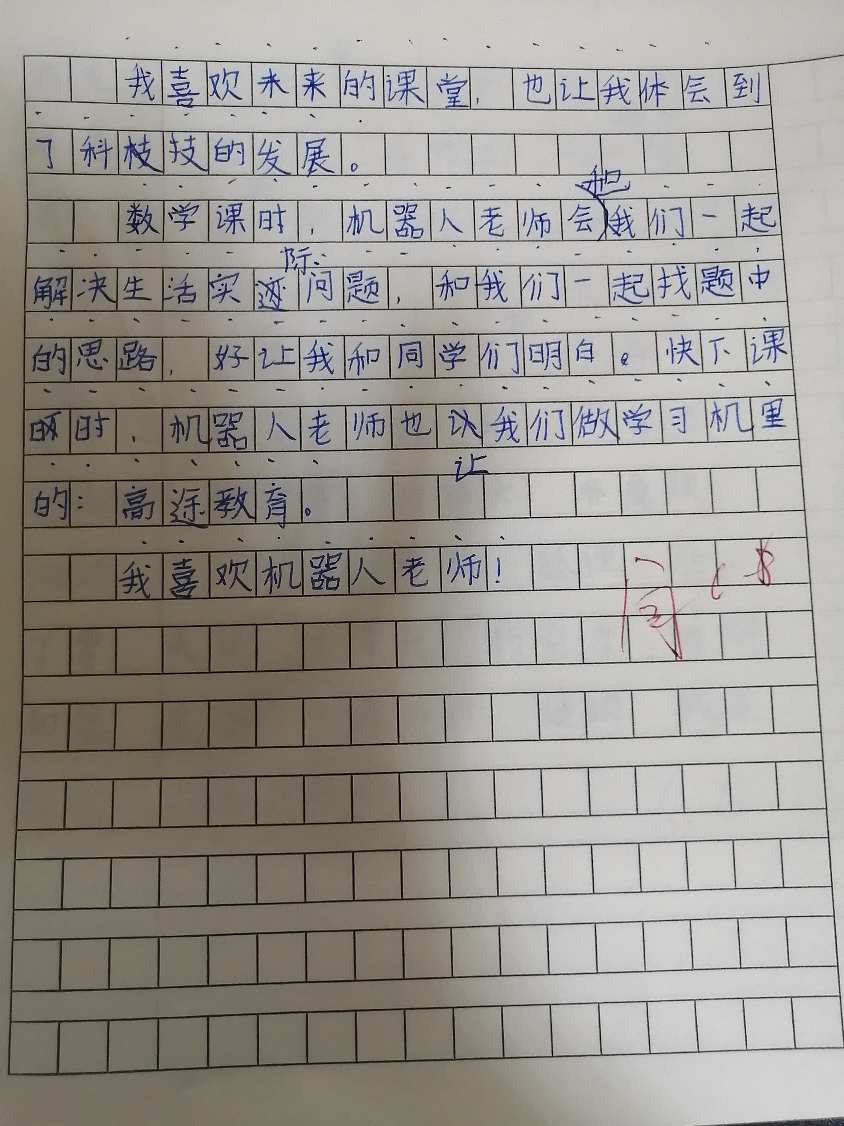 我喜欢未来的课堂，也让我体会到
了科枝技的发展。
数学课时，机器人老师会和我们一起
解决生活实际问题，和我们一起找题中
的思路，好让我和同学们明白。快下课
时，机器人老师也让我们做学习机里
的：高途教育。
我喜欢机器人老师！